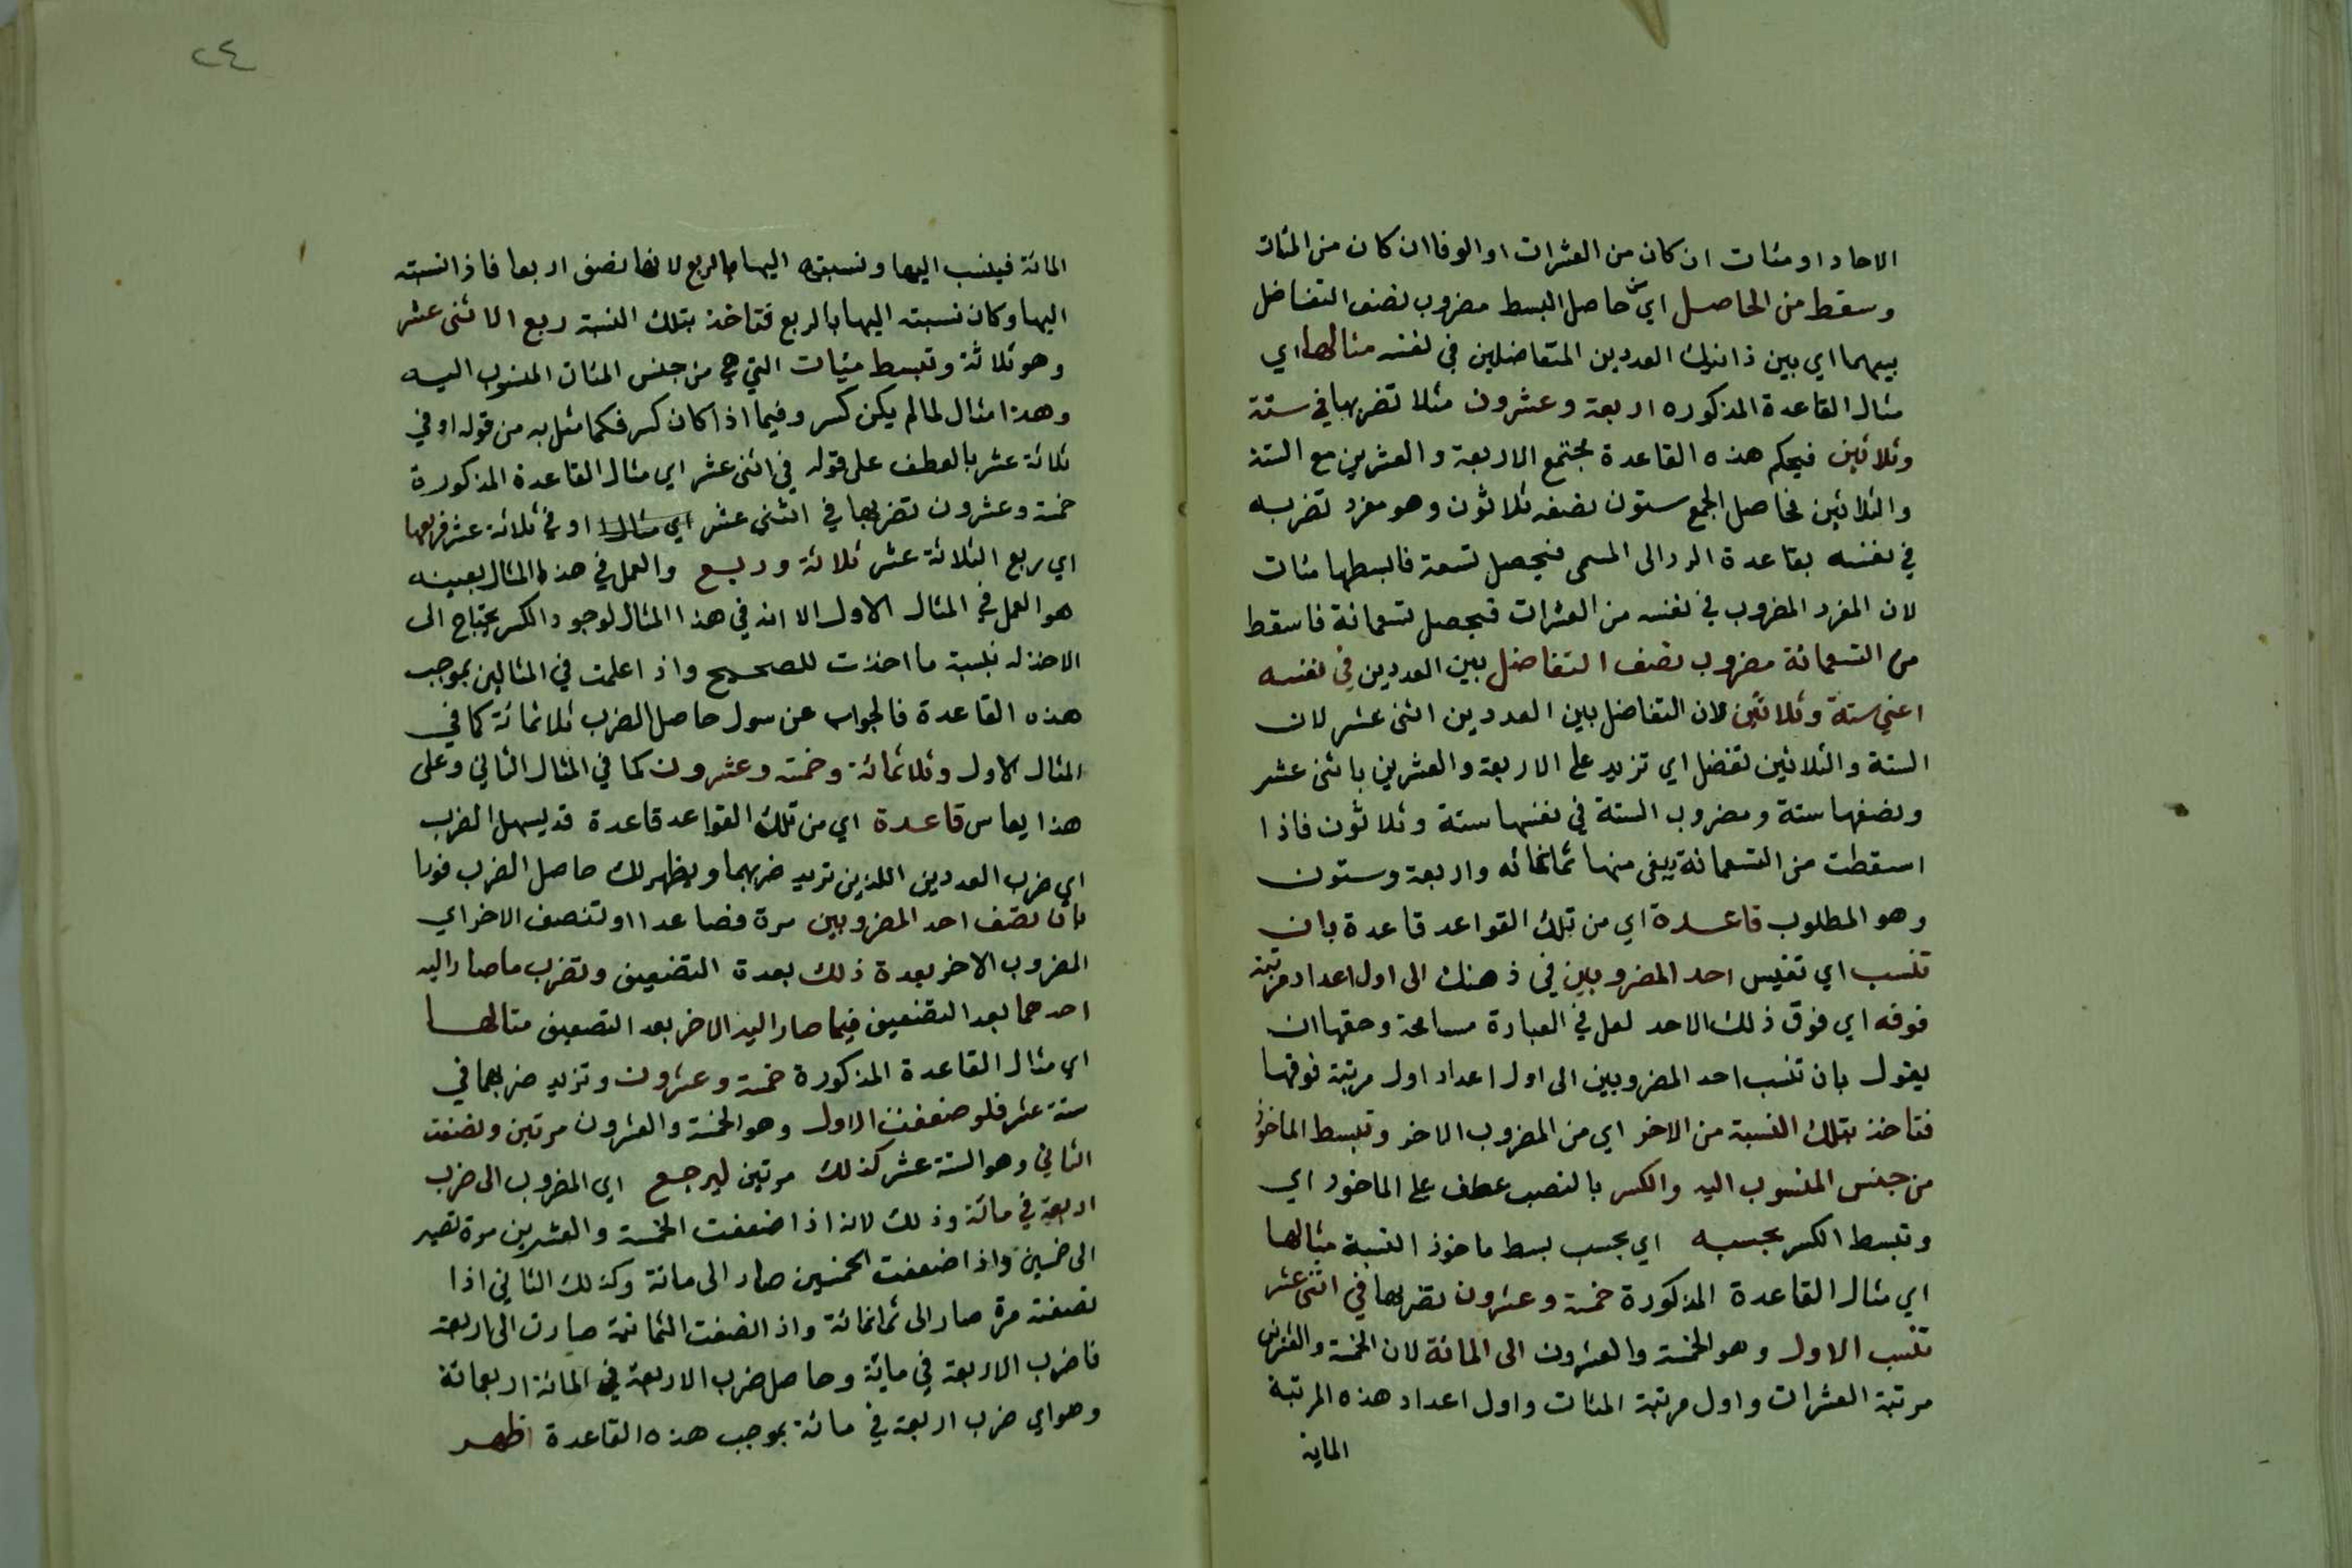 الاحاد او مئات ان كان من العشرات او الوفا ان كان من المئات
وسقط من الحاصل اي من حاصل البسط مضروب نصف التفاضل
بينهما اي بين ذانيك العددين المتفاضلين في نفسه مثالها اي
مثال القاعدة المذكوره اربعة وعشرون مثلا تضربها في ستة
وثلاثين فبحكم هذه القاعدة تجتمع الاربعة والعشرين مع الستة
والثلاثين فحاصل الجمع ستون نصفه ثلاثون وهو مفرد تضربه
في نفسه بقاعدة الرد الى المسمى فيحصل تسعة فابسطها مئات
لان المفرد المضروب في نفسه من العشرات فيحصل تسعمائة فاسقط
من التسعمائة مضروب نصف التفاضل بين العددين في نفسه
اعني ستة وثلاثين لان التفاضل بين العددين اثنى عشر لان
الستة والثلاثين تفضل اي تزيد على الاربعة والعشرين باثنى عشر
ونصفها ستة ومضروب الستة في نفسها ستة وثلاثون فاذا
اسقطت من التسعمائة يبقى منها ثمانمائه واربعة وستون
وهو المطلوب قاعدة اي من تلك القواعد قاعدة بان
تنسب اي تقيس احد المضروبين في ذهنك الى اول اعداد مرتبة
فوقه اي فوق ذلك الاحد لعل في العبارة مسامحة وحقها ان
يقول بان تنسب احد المضروبين الى اول اعداد اول مرتبة فوقها
فتاخذ بتلك النسبة من الاخر اي من المضروب الاخر وتبسط الماخوذ
من جنس المنسوب اليه والكسر بالنصب عطف على الماخوذ اي
وتبسط الكسر بحسبه اي بحسب بسط ماخوذ النسبة مثالها
اي مثال القاعدة المذكورة خمسة وعشرون تضربها في اثنى عشر
تنسب الاول وهو الخمسة والعشرون الى المائة لان الخمسة والعشرين
مرتبة العشرات واول مرتبة المئات واول اعداد هذه المرتبة
الماية
٢٤
المائة فينسب اليها ونسبته اليها بالربع لانها نصف اربعا فاذا نسبته
اليها وكان نسبته اليها بالربع فتاخذ بتلك النسبة ربع الاثنى عشر
وهو ثلاثة وتبسط مئيات التي هي من جنس المئات المنسوب اليه
وهذا مثال لما لم يكن كسر وفيما اذا كان كسر فكما مثل به من قوله او في
ثلاثة عشر بالعطف على قوله في اثنى عشر اي مثال القاعدة المذكورة
خمسة وعشرون تضربها في اثنى عشر اي مثالها او في ثلاثة عشر فربعها
اي ربع الثلاثة عشر ثلاثة وربع والعمل في هذا المثال بعينه
هو العمل في المثال الاول الا انه في هذا المثال لوجود الكسر يحتاج الى
الاخذ له بنسبة ما اخذت للصحيح واذا علمت في المثالين بموجب
هذه القاعدة فالجواب عن سول حاصل الضرب ثلاثمائة كما في
المثال الاول وثلاثمائة وخمسة وعشرون كما في المثال الثاني وعلى
هذا يقاس قاعدة اي من تلك القواعد قاعدة قد يسهل الضرب
اي ضرب العددين اللذين تريد ضربهما ويظهر لك حاصل الضرب فورا
بان تضف احد المضروبين مرة فصاعدا او تنصف الاخر اي
المضروب الاخر بعدة ذلك بعدة التضعيف وتضرب ما صار اليه
احدهما بعد التضعيف فيما صار اليه الاخر بعد التصعيف مثالها
اي مثال القاعدة المذكورة خمسة وعشرون وتزيد ضربها في
ستة عشر فلو ضعفت الاول وهو الخمسة والعشرون مرتين ونصفت
الثاني وهو الستة عشر كذلك مرتين ليرجع اي المضروب الى ضرب
اربعة في مائة وذلك لانه اذا ضعفت الخمسة والعشرين مرة تصير
الى خمسين واذا ضعفت الخمسين صار الى مائة وكذلك الثاني اذا
نصفته مرة صار الى ثمانمائة واذا نصفت الثمانية صارت الى اربعة
فاضرب الاربعة في مائة وحاصل ضرب الاربعة في المائة اربعمائة
وهو اي ضرب اربعة في مائة بموجب هذه القاعدة اظهر